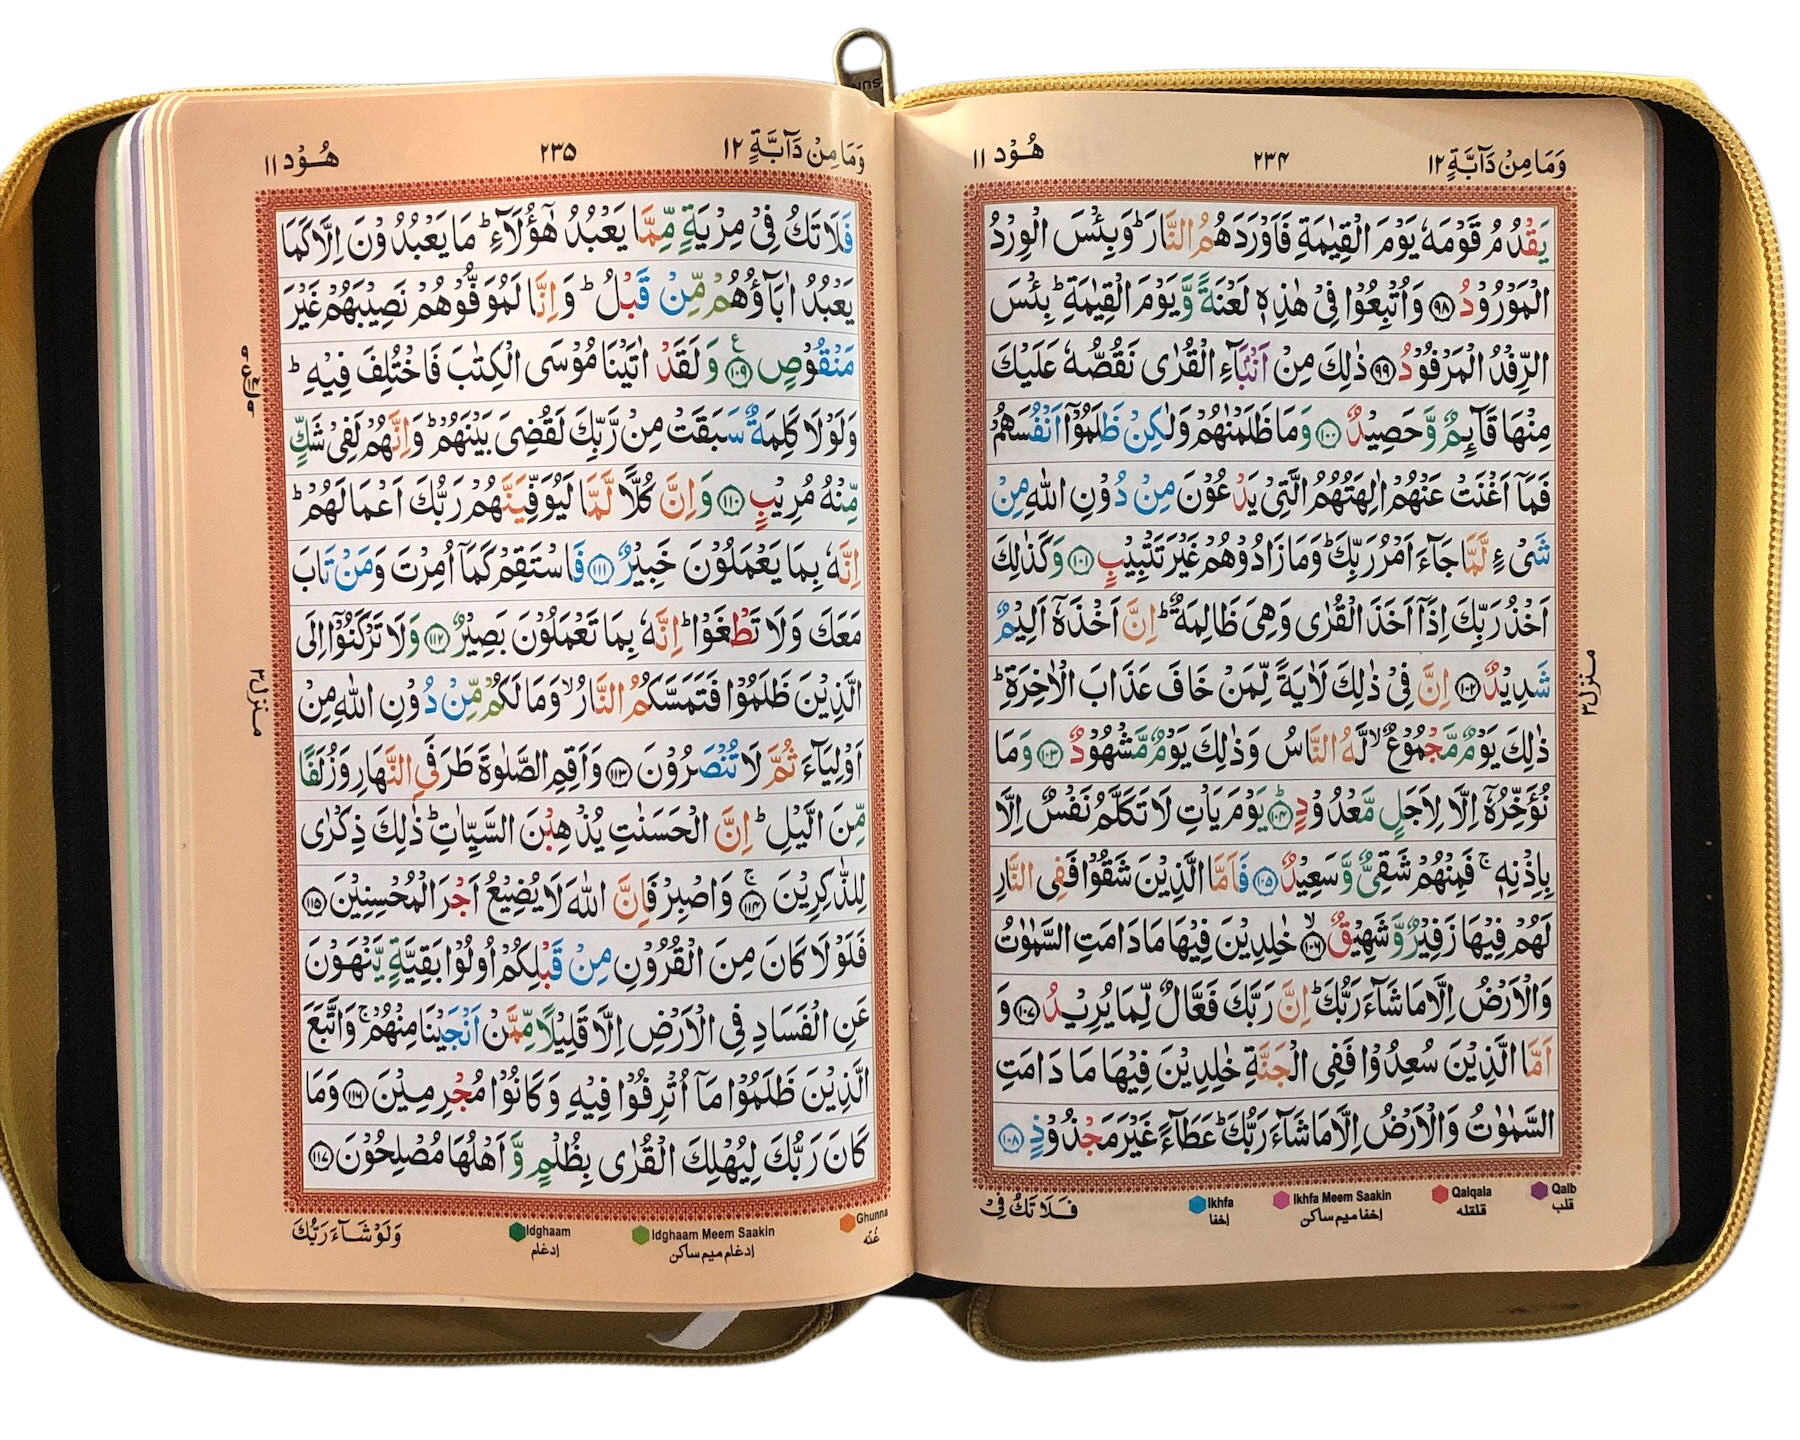 وَمَا مِنْ دَآبَّةٍ ١٢
٢٣۴
هُوْد ١١
يَقْدُمُ قَوْمَهٗ يَوْمَ الْقِيٰمَةِ فَاَوْرَدَهُمُ النَّارَ ؕ وَبِئْسَ الْوِرْدُ
الْمَوْرُوْدُ ﴿۹۸﴾ وَاُتْبِعُوْا فِيْ هٰذِهٖ لَعْنَةً وَّيَوْمَ الْقِيٰمَةِ ؕ بِئْسَ
الرِّفْدُ الْمَرْفُوْدُ ﴿۹۹﴾ ذٰلِكَ مِنْ اَنْۢبَآءِ الْقُرٰى نَقُصُّهٗ عَلَيْكَ
مِنْهَا قَآئِمٌ وَّحَصِيْدٌ ﴿۱۰۰﴾ وَمَا ظَلَمْنٰهُمْ وَلٰكِنْ ظَلَمُوْۤا اَنْفُسَهُمْ
فَمَاۤ اَغْنَتْ عَنْهُمْ اٰلِهَتُهُمُ الَّتِيْ يَدْعُوْنَ مِنْ دُوْنِ اللّٰهِ مِنْ
شَيْءٍ لَّمَّا جَآءَ اَمْرُ رَبِّكَ ؕ وَمَا زَادُوْهُمْ غَيْرَ تَتْبِيْبٍ ﴿۱۰۱﴾ وَكَذٰلِكَ
اَخْذُ رَبِّكَ اِذَاۤ اَخَذَ الْقُرٰى وَهِيَ ظَالِمَةٌ ؕ اِنَّ اَخْذَهٗۤ اَلِيْمٌ
شَدِيْدٌ ﴿۱۰۲﴾ اِنَّ فِيْ ذٰلِكَ لَاٰيَةً لِّمَنْ خَافَ عَذَابَ الْاٰخِرَةِ ؕ
ذٰلِكَ يَوْمٌ مَّجْمُوْعٌ ۙ لَّهُ النَّاسُ وَذٰلِكَ يَوْمٌ مَّشْهُوْدٌ ﴿۱۰۳﴾ وَمَا
نُؤَخِّرُهٗۤ اِلَّا لِاَجَلٍ مَّعْدُوْدٍ ؕ﴿۱۰۴﴾ يَوْمَ يَاْتِ لَا تَكَلَّمُ نَفْسٌ اِلَّا
بِاِذْنِهٖ ۚ فَمِنْهُمْ شَقِيٌّ وَّسَعِيْدٌ ﴿۱۰۵﴾ فَاَمَّا الَّذِيْنَ شَقُوْا فَفِي النَّارِ
لَهُمْ فِيْهَا زَفِيْرٌ وَّشَهِيْقٌ ۙ﴿۱۰۶﴾ خٰلِدِيْنَ فِيْهَا مَا دَامَتِ السَّمٰوٰتُ
وَالْاَرْضُ اِلَّا مَا شَآءَ رَبُّكَ ؕ اِنَّ رَبَّكَ فَعَّالٌ لِّمَا يُرِيْدُ ﴿۱۰۷﴾ وَ
اَمَّا الَّذِيْنَ سُعِدُوْا فَفِي الْجَنَّةِ خٰلِدِيْنَ فِيْهَا مَا دَامَتِ
السَّمٰوٰتُ وَالْاَرْضُ اِلَّا مَا شَآءَ رَبُّكَ ؕ عَطَآءً غَيْرَ مَجْذُوْذٍ ﴿۱۰۸﴾
منزل ٣
Qalb
قلب
Qalqala
قلقله
Ikhfa Meem Saakin
إخفا ميم ساكن
Ikhfa
إخفا
فَلَا تَكُ فِيْ
وَمَا مِنْ دَآبَّةٍ ١٢
٢٣۵
هُوْد ١١
فَلَا تَكُ فِيْ مِرْيَةٍ مِّمَّا يَعْبُدُ هٰۤؤُلَآءِ ؕ مَا يَعْبُدُوْنَ اِلَّا كَمَا
يَعْبُدُ اٰبَآؤُهُمْ مِّنْ قَبْلُ ؕ وَاِنَّا لَمُوَفُّوْهُمْ نَصِيْبَهُمْ غَيْرَ
مَنْقُوْصٍ ﴿۱۰۹﴾ وَلَقَدْ اٰتَيْنَا مُوْسَى الْكِتٰبَ فَاخْتُلِفَ فِيْهِ ؕ
وَلَوْلَا كَلِمَةٌ سَبَقَتْ مِنْ رَّبِّكَ لَقُضِيَ بَيْنَهُمْ ؕ وَاِنَّهُمْ لَفِيْ شَكٍّ
مِّنْهُ مُرِيْبٍ ﴿۱۱۰﴾ وَاِنَّ كُلًّا لَّمَّا لَيُوَفِّيَنَّهُمْ رَبُّكَ اَعْمَالَهُمْ ؕ
اِنَّهٗ بِمَا يَعْمَلُوْنَ خَبِيْرٌ ﴿۱۱۱﴾ فَاسْتَقِمْ كَمَاۤ اُمِرْتَ وَمَنْ تَابَ
مَعَكَ وَلَا تَطْغَوْا ؕ اِنَّهٗ بِمَا تَعْمَلُوْنَ بَصِيْرٌ ﴿۱۱۲﴾ وَلَا تَرْكَنُوْۤا اِلَى
الَّذِيْنَ ظَلَمُوْا فَتَمَسَّكُمُ النَّارُ ۙ وَمَا لَكُمْ مِّنْ دُوْنِ اللّٰهِ مِنْ
اَوْلِيَآءَ ثُمَّ لَا تُنْصَرُوْنَ ﴿۱۱۳﴾ وَاَقِمِ الصَّلٰوةَ طَرَفَيِ النَّهَارِ وَزُلَفًا
مِّنَ الَّيْلِ ؕ اِنَّ الْحَسَنٰتِ يُذْهِبْنَ السَّيِّاٰتِ ؕ ذٰلِكَ ذِكْرٰى
لِلذّٰكِرِيْنَ ۚ﴿۱۱۴﴾ وَاصْبِرْ فَاِنَّ اللّٰهَ لَا يُضِيْعُ اَجْرَ الْمُحْسِنِيْنَ ﴿۱۱۵﴾
فَلَوْلَا كَانَ مِنَ الْقُرُوْنِ مِنْ قَبْلِكُمْ اُولُوْا بَقِيَّةٍ يَّنْهَوْنَ
عَنِ الْفَسَادِ فِي الْاَرْضِ اِلَّا قَلِيْلًا مِّمَّنْ اَنْجَيْنَا مِنْهُمْ ۚ وَاتَّبَعَ
الَّذِيْنَ ظَلَمُوْا مَاۤ اُتْرِفُوْا فِيْهِ وَكَانُوْا مُجْرِمِيْنَ ﴿۱۱۶﴾ وَمَا
كَانَ رَبُّكَ لِيُهْلِكَ الْقُرٰى بِظُلْمٍ وَّاَهْلُهَا مُصْلِحُوْنَ ﴿۱۱۷﴾
منزل ٣
Ghunna
غُنّه
Idghaam Meem Saakin
إدغام ميم ساكن
Idghaam
إدغام
وَلَوْ شَآءَ رَبُّكَ